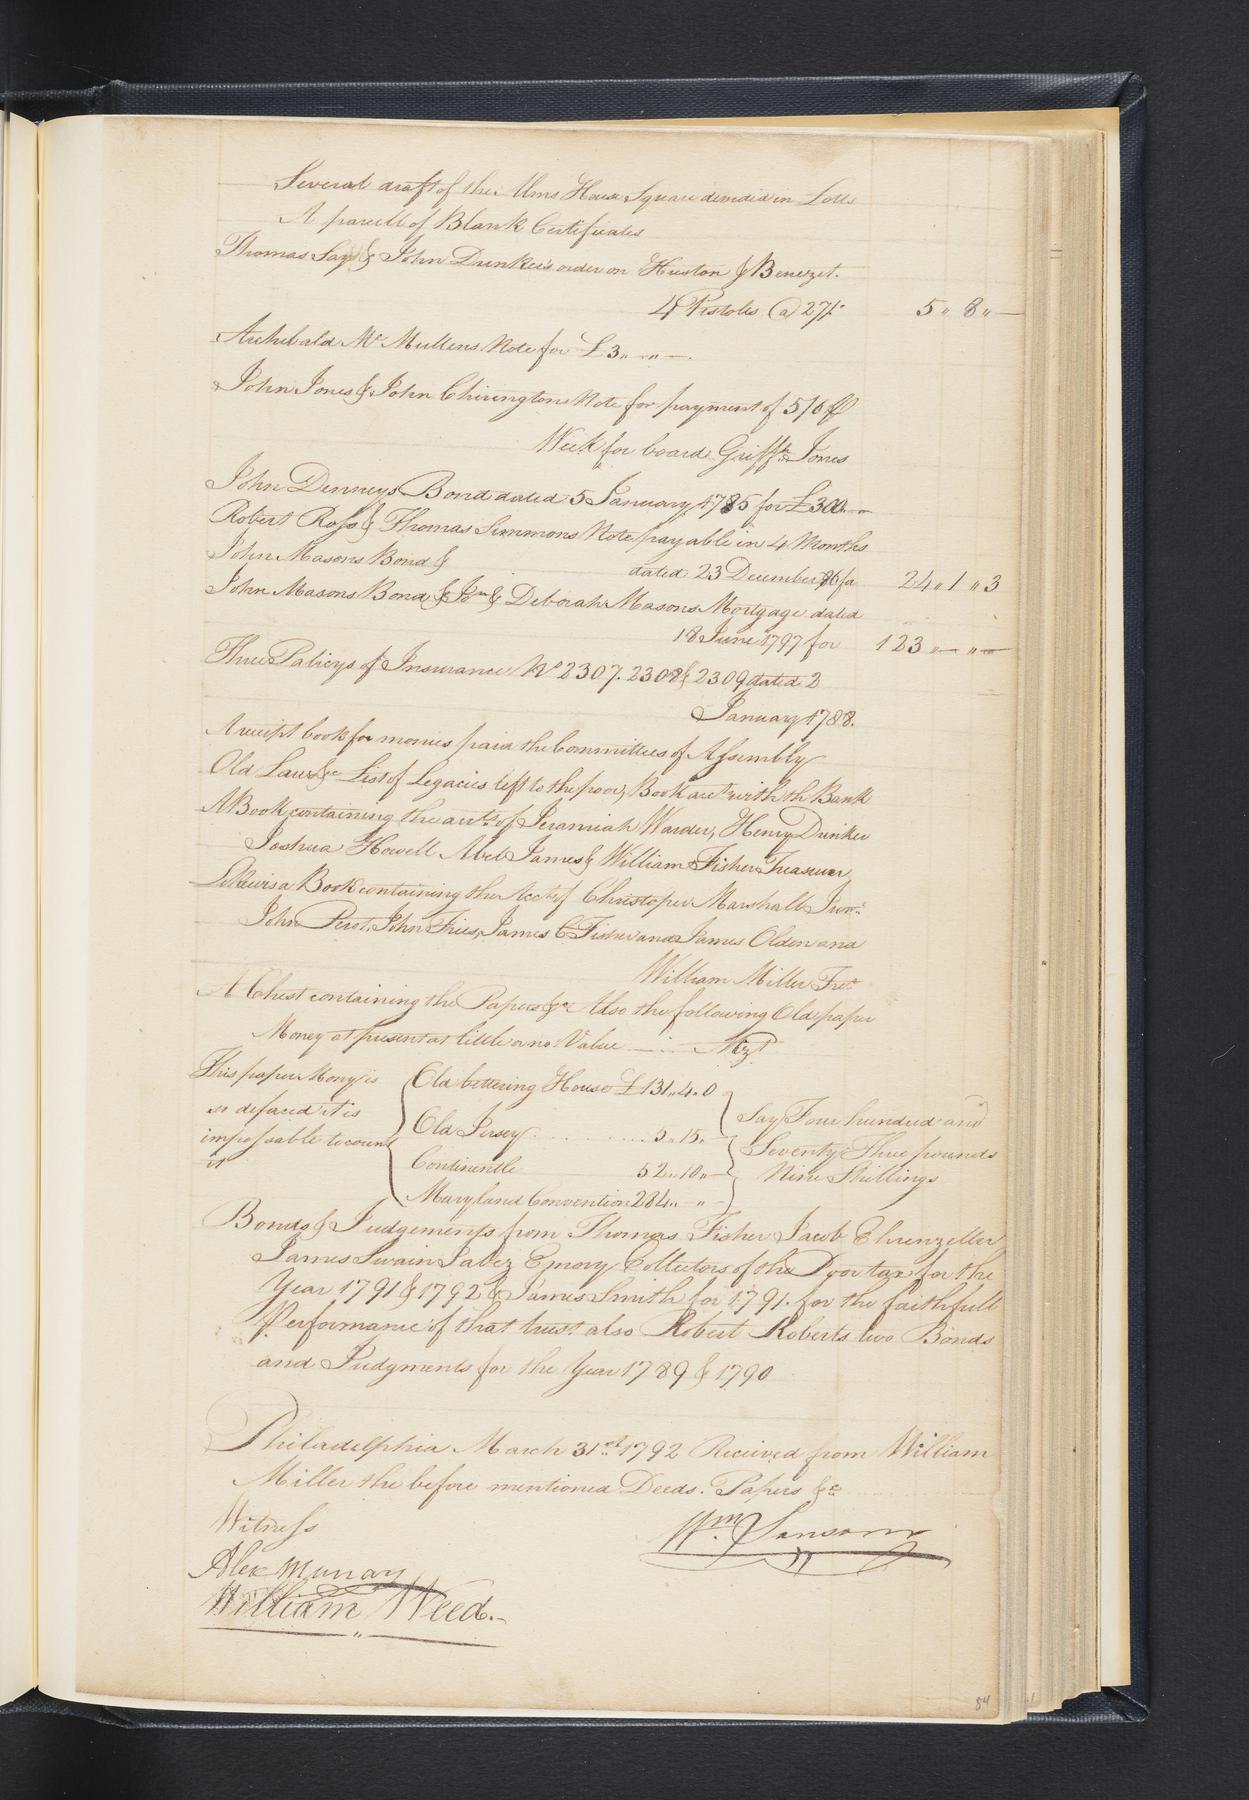 Several draft of the Alms House Square devided in Lotts
A parcell of Blank Certificates
Thomas Say & John Drinkers order on Huston & Benezet.
4 Pistoles @ 27/ 5 " 8 " —
Archibald Mc Mullens Note for £3 " — " —
John Jones & John Chiringtons Note for payment of 5/10 P
Week for board Griffth Jones
John Denneys Bond dated 5 January 1785 for £300 —
Robert Ross & Thomas Simmons Note payable in 4 Months
John Masons Bond & dated 23 December 86 for 24 " 1 " 3
John Masons Bond & Jno & Deborah Masons Mortgage dated
18 June 1797 for 123 " — " —
Three Policys of Insurance No 2307. 2308 & 2309 dated 2
January 1788.
A recipt book for monies paid the Committees of Assembly
Old Laws &c List of Legacies left to the poor, Book acct with th Bank
A Book containing the accts of Jeramiah Warder, Henry Drinker
Joshua Howell Abel James & William Fisher Treasurer
Likewis a Book containing the Acct of Christoper Marshall Junr
John Perot, John Fries, James C Fisher and James Olden and
William Miller Trer
A Chest containing the Papers &c Also the following Old paper
Money at present at little or no Value — Vizt
This paper Mony is
so defaced it is
impossable to count
it
Old bettering House £131 " 4 " 0
Old Jersey . . . . . . . . . 5 " 15 " —
Continentle 52 " 10 " —
Maryland Convention 284 " — " —
Say Four hundred and
Seventy Three pounds
Nine Shillings
Bonds & Judgements from Thomas Fisher Jacob Ehrenzeller
James Swain Jabez Emory Collectors of the Poor tax for the
Year 1791 & 1792 & James Smith for 1791. for the faithfull
Performance of that trust also Robert Roberts two Bonds
and Judgments for the Year 1789 & 1790
Philadelphia March 31st 1792 Received from William
Miller the before mentioned Deeds. Papers &c
Witness
Wm Sansom
Alex Murray
William Weed.
84